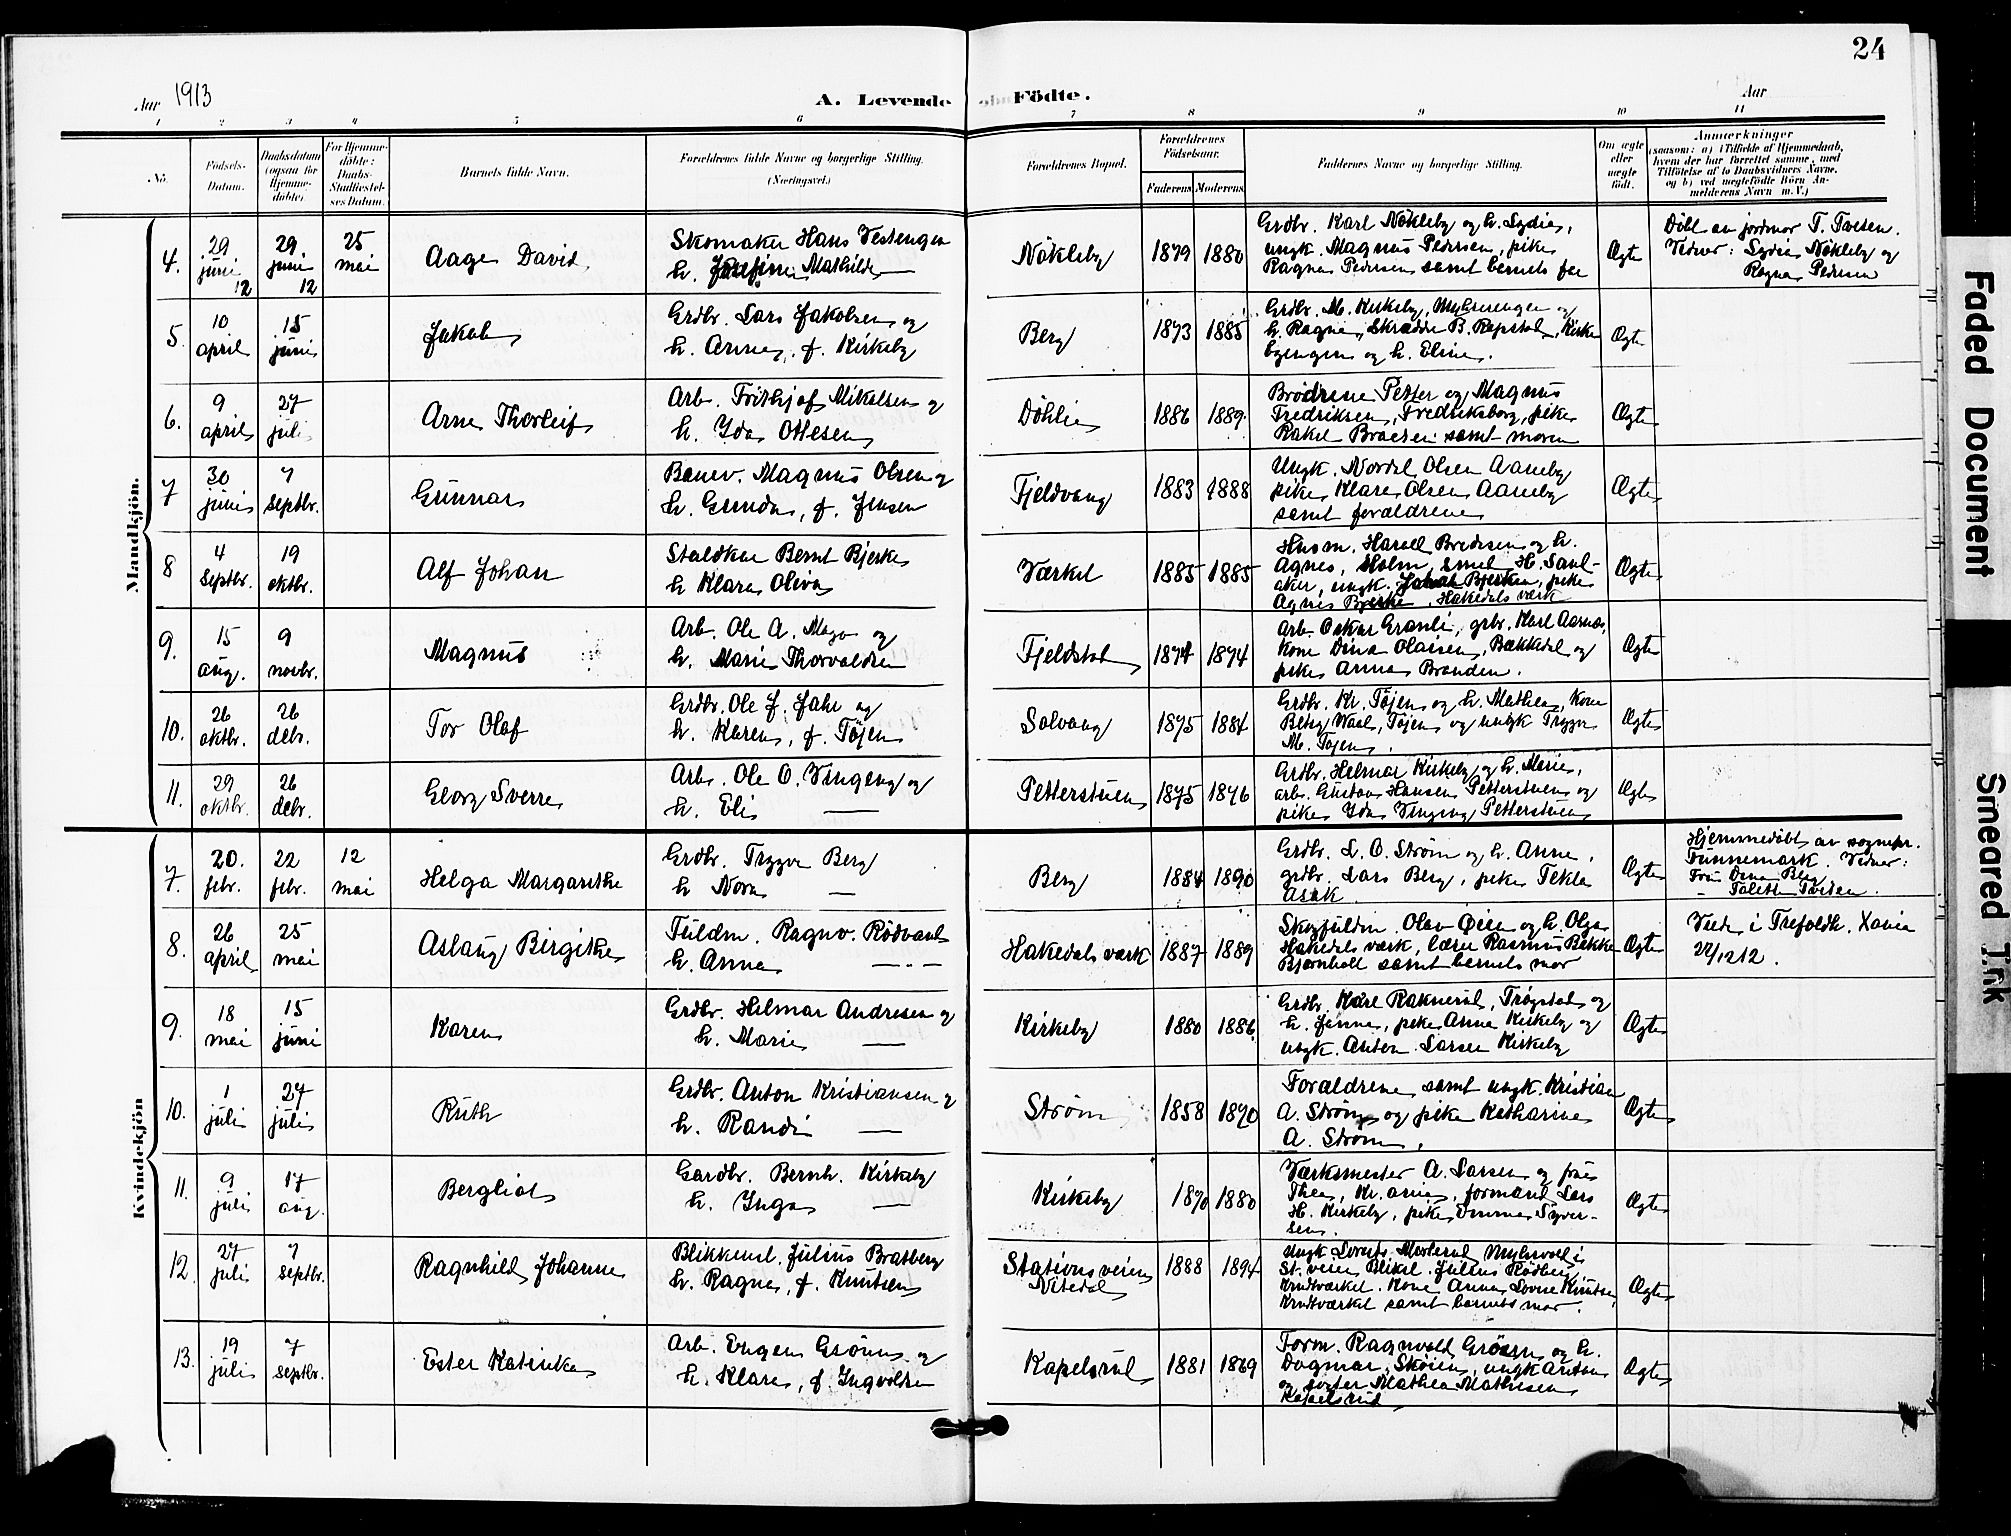 24
Aar 1913
A. Levende Födte.
Aar
1 2 3 4 5 6 7 8 9 10 11
No.
Födsels-
Datum.
Daabsdatum
(ogsaa for
Hjemme-
döbte).
For Hjemme-
döbte:
Daabs-
Stadfæstel-
ses Datum.
Barnets fulde Navn.
Forældrenes fulde Navne og borgerlige Stilling.
(Næringsvei.)
Forældrenes Bopæl.
Forældrenes
Födselsaar.
Faderens Moderens
Faddernes Navne og borgerlige Stilling.
Om ægte
eller
uægte
födt.
Anmærkninger
(saasom: a) i Tilfælde af Hjemmedaab,
hvem der har forrettet samme, med
Tilföielse af to Daabsvidners Navne,
og b) ved uægtefödte Börn An-
melderens Navn m. V.)
Mandkjön.
4. 29 juni 12
29 juni 12
25 mai
Aage David
Skomaker Hans Vestengen
h. Josefine Mathilde —
Nökleby
1879 1880
Grdbr. Karl Nökleby og h. Lydia,
ungk. Magnus Pedersen, pike
Ragna Pedersen samt barnets far
Ægte
Döbt av jordmor T. Tvesen.
Vidner: Lydia Nökleby og
Ragna Pedersen
5. 10 april
15 juni
Jakob
Grdbr. Lars Jakobsen og
h. Anna, f. Kirkeby
Berg
1873 1885
Grdbr. M. Kirkeby, Myhrengen og
h. Ragna, Skrædder B. Rapstad, Kirke
byengen og h. Eline.
Ægte
6. 9 april
27 juli
Arne Thorleif
Arb. Frithjof Mikalsen og
h. Yda Ottesen
Döhlie
1886 1889
Brödrene Petter og Magnus
Fredriksen, Fredriksborg, pike
Rakel Braesen samt moren
Ægte
7 30 juni
7 septbr.
Gunnar
Banev. Magnus Olsen og
h. Gunda, f. Jensen
Fjeldvang
1883 1888
Ungk. Nordal Olsen Aaneby
pike Klara Olsen Aaneby
samt forældrene
Ægte
8 4 septbr.
19 oktbr.
Alf Johan
Staldkar Bernt Bjerke
h Klara Oliva
Værket
1885 1885
Husm. Harald Bredesen og h.
Agnes, Holm, smed H. Saul-
aker, ungk. Johan Bjerke, pike
Agnes Bjerke, Hakedals værk
Ægte
9. 15 aug.
9 novbr.
Magnus
Arb. Ole A. Moga og
h. Marie Thorvaldsen
Fjeldstad
1874 1874
Arb. Oskar Granli, grbr. Karl Aarnæs,
Kone Dina Olaisen, Bækkedal og
pike Anna Branden.
Ægte
10. 26 oktbr.
26 debr.
Tor Olaf
Grdbr. Ole J. Jahr og
h. Karen, f. Töjen
Solvang
1875 1884
Grdbr. Kr. Töjen og h. Mathea, Kone
Betsy Waal, Töjen og ungk Trygve
M. Töjen.
Ægte
11. 29 oktbr.
26 debr.
Georg Sverre
Arb. Ole O. Vingeng og
h. Eli —
Petterstuen
1875 1876
Grdbr. Helmar Kirkeby og h. Marie,
arb. Gustav Hansen Petterstuen og
pike Yda Vingeng Petterstuen
Ægte
Kvindekjön
7. 20. febr.
22 febr.
12 mai
Helga Margarethe
Grdbr. Trygve Berg
h Nora —
Berg
1884 1890
Grdbr. L. O. Ström og h. Anne.
grdbr. Lars Berg, pike Tekla
Asak
Ægte
Hjemmedöbt av sognepr.
Tunnemark. Vidner:
Fru Dina Berg
8. 26 april
25 mai
Aslaug Birgithe
Fuldm. Ragnv. Rödvand
h. Anna —
Hakedals værk
1887 1889
Skogfuldm. Olav Öien og h. Olga
Hakedals værk, lærer Rasmus Bakke
Bjørnholt samt barnets mor
Ægte
Viede i Trefoldh. Xania
22/12 12.
9. 18 mai
15 juni
Karen
Grdbr. Helmar Andresen og
h. Marie —
Kirkeby
1880 1886
Grdbr. Karl Raknerud, Trögstad og
h. Jenna, pike Anna Kirkeby og
ungk. Anton Larsen Kirkeby
Ægte
10. 1 juli
27 juli
Ruth
Grdbr. Anton Kristiansen og
h. Randi —
Ström
1858 1870
Forældrene samt ungk Kristian
A. Ström og pike Katharine
A. Ström.
Ægte
11. 9 juli
17 aug.
Bergliot
Gardbr. Bernh. Kirkeby
h. Inga —
Kirkeby
1870 1880
Værksmester A. Larsen og frue
Thea, Kr. ania, formand Lars
H. Kirkeby, pike Emma Syver-
sen.
Ægte
12. 27 juli
7 septbr.
Ragnhild Johanne
Blikkensl. Julius Bratberg
h. Ragna, f. Knutsen
Stationsveien
Nitedal
1888 1894
Ungk Myhrvold i
St. veien Bliksl. Julius Rödberg
Krudtværket. Kone Anna Lovise Knutsen
Krudtværket samt barnets mor.
Ægte
13. 19 juli
7 septbr.
Ester Katinka
Arb. Eugen Grönn og
h. Klara, f. Ingvolsen
Kapelsrud
1881 1869
Form. Ragnvald Gröenn og h.
Dagmar, Sköien, ungk Anton
og søster Mathea Mathisen
Kapelsrud
Ægte
Faded Document
Smeared Ink